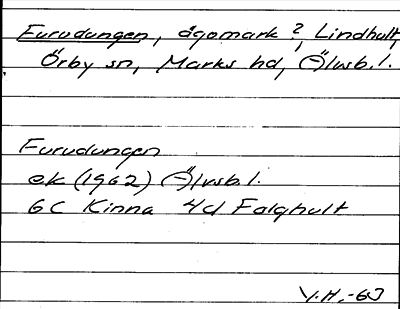 Furudungen, ägomark?, Lindhult,
Örby sn, Marks hd, Älvsb.l.
Furudungen
ek (1962) Älvsb.l.
6C Kinna 4d Falghult
V.H.-63